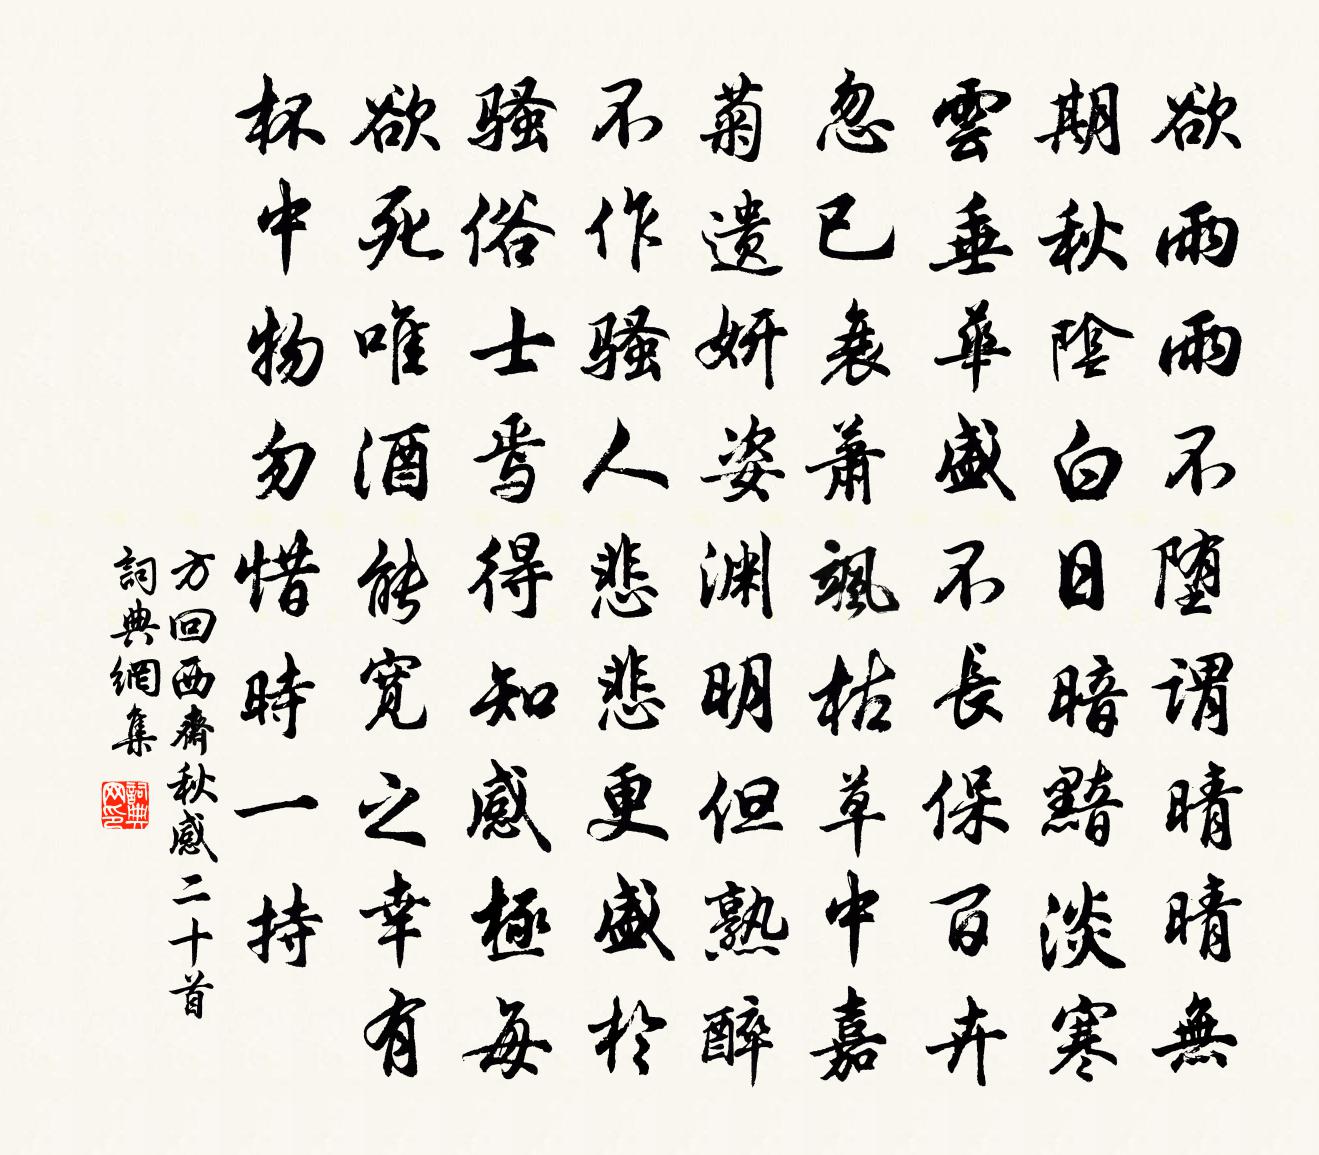 欲雨雨不堕謂晴晴無
期秋陰白日暗黯淡寒
雲垂華盛不長保百卉
忽已衰蕭颯枯草中嘉
菊遗妍姿渊明但熟醉
不作骚人悲悲更盛於
骚俗士焉得知感極每
欲死唯酒能寬之幸有
杯中物勿惜時一持
方回西齋秋感二十首
詞典網集
詞典
网印